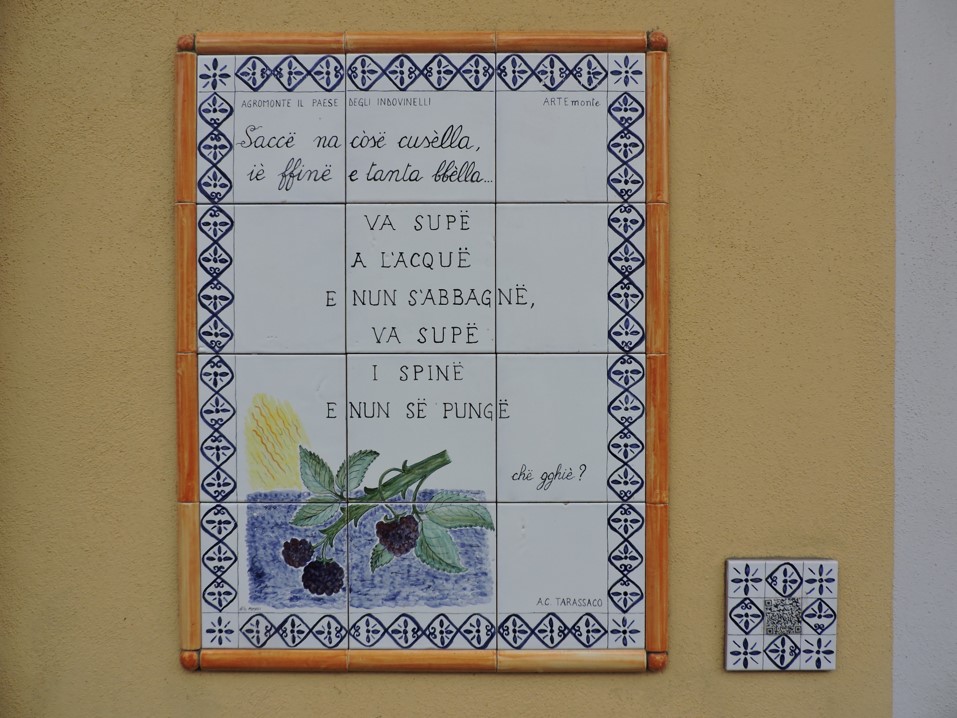 AGROMONTE IL PAESE DEGLI INDOVINELLI
ARTEmonte
Saccë na còsë cusèlla,
iè ffinë e tanta bbèlla...
VA SUPË
A L'ACQUË
E NUN S'ABBAGNË,
VA SUPË
I SPINË
E NUN SË PUNGË
chë gghiè?
A.C. TARASSACO